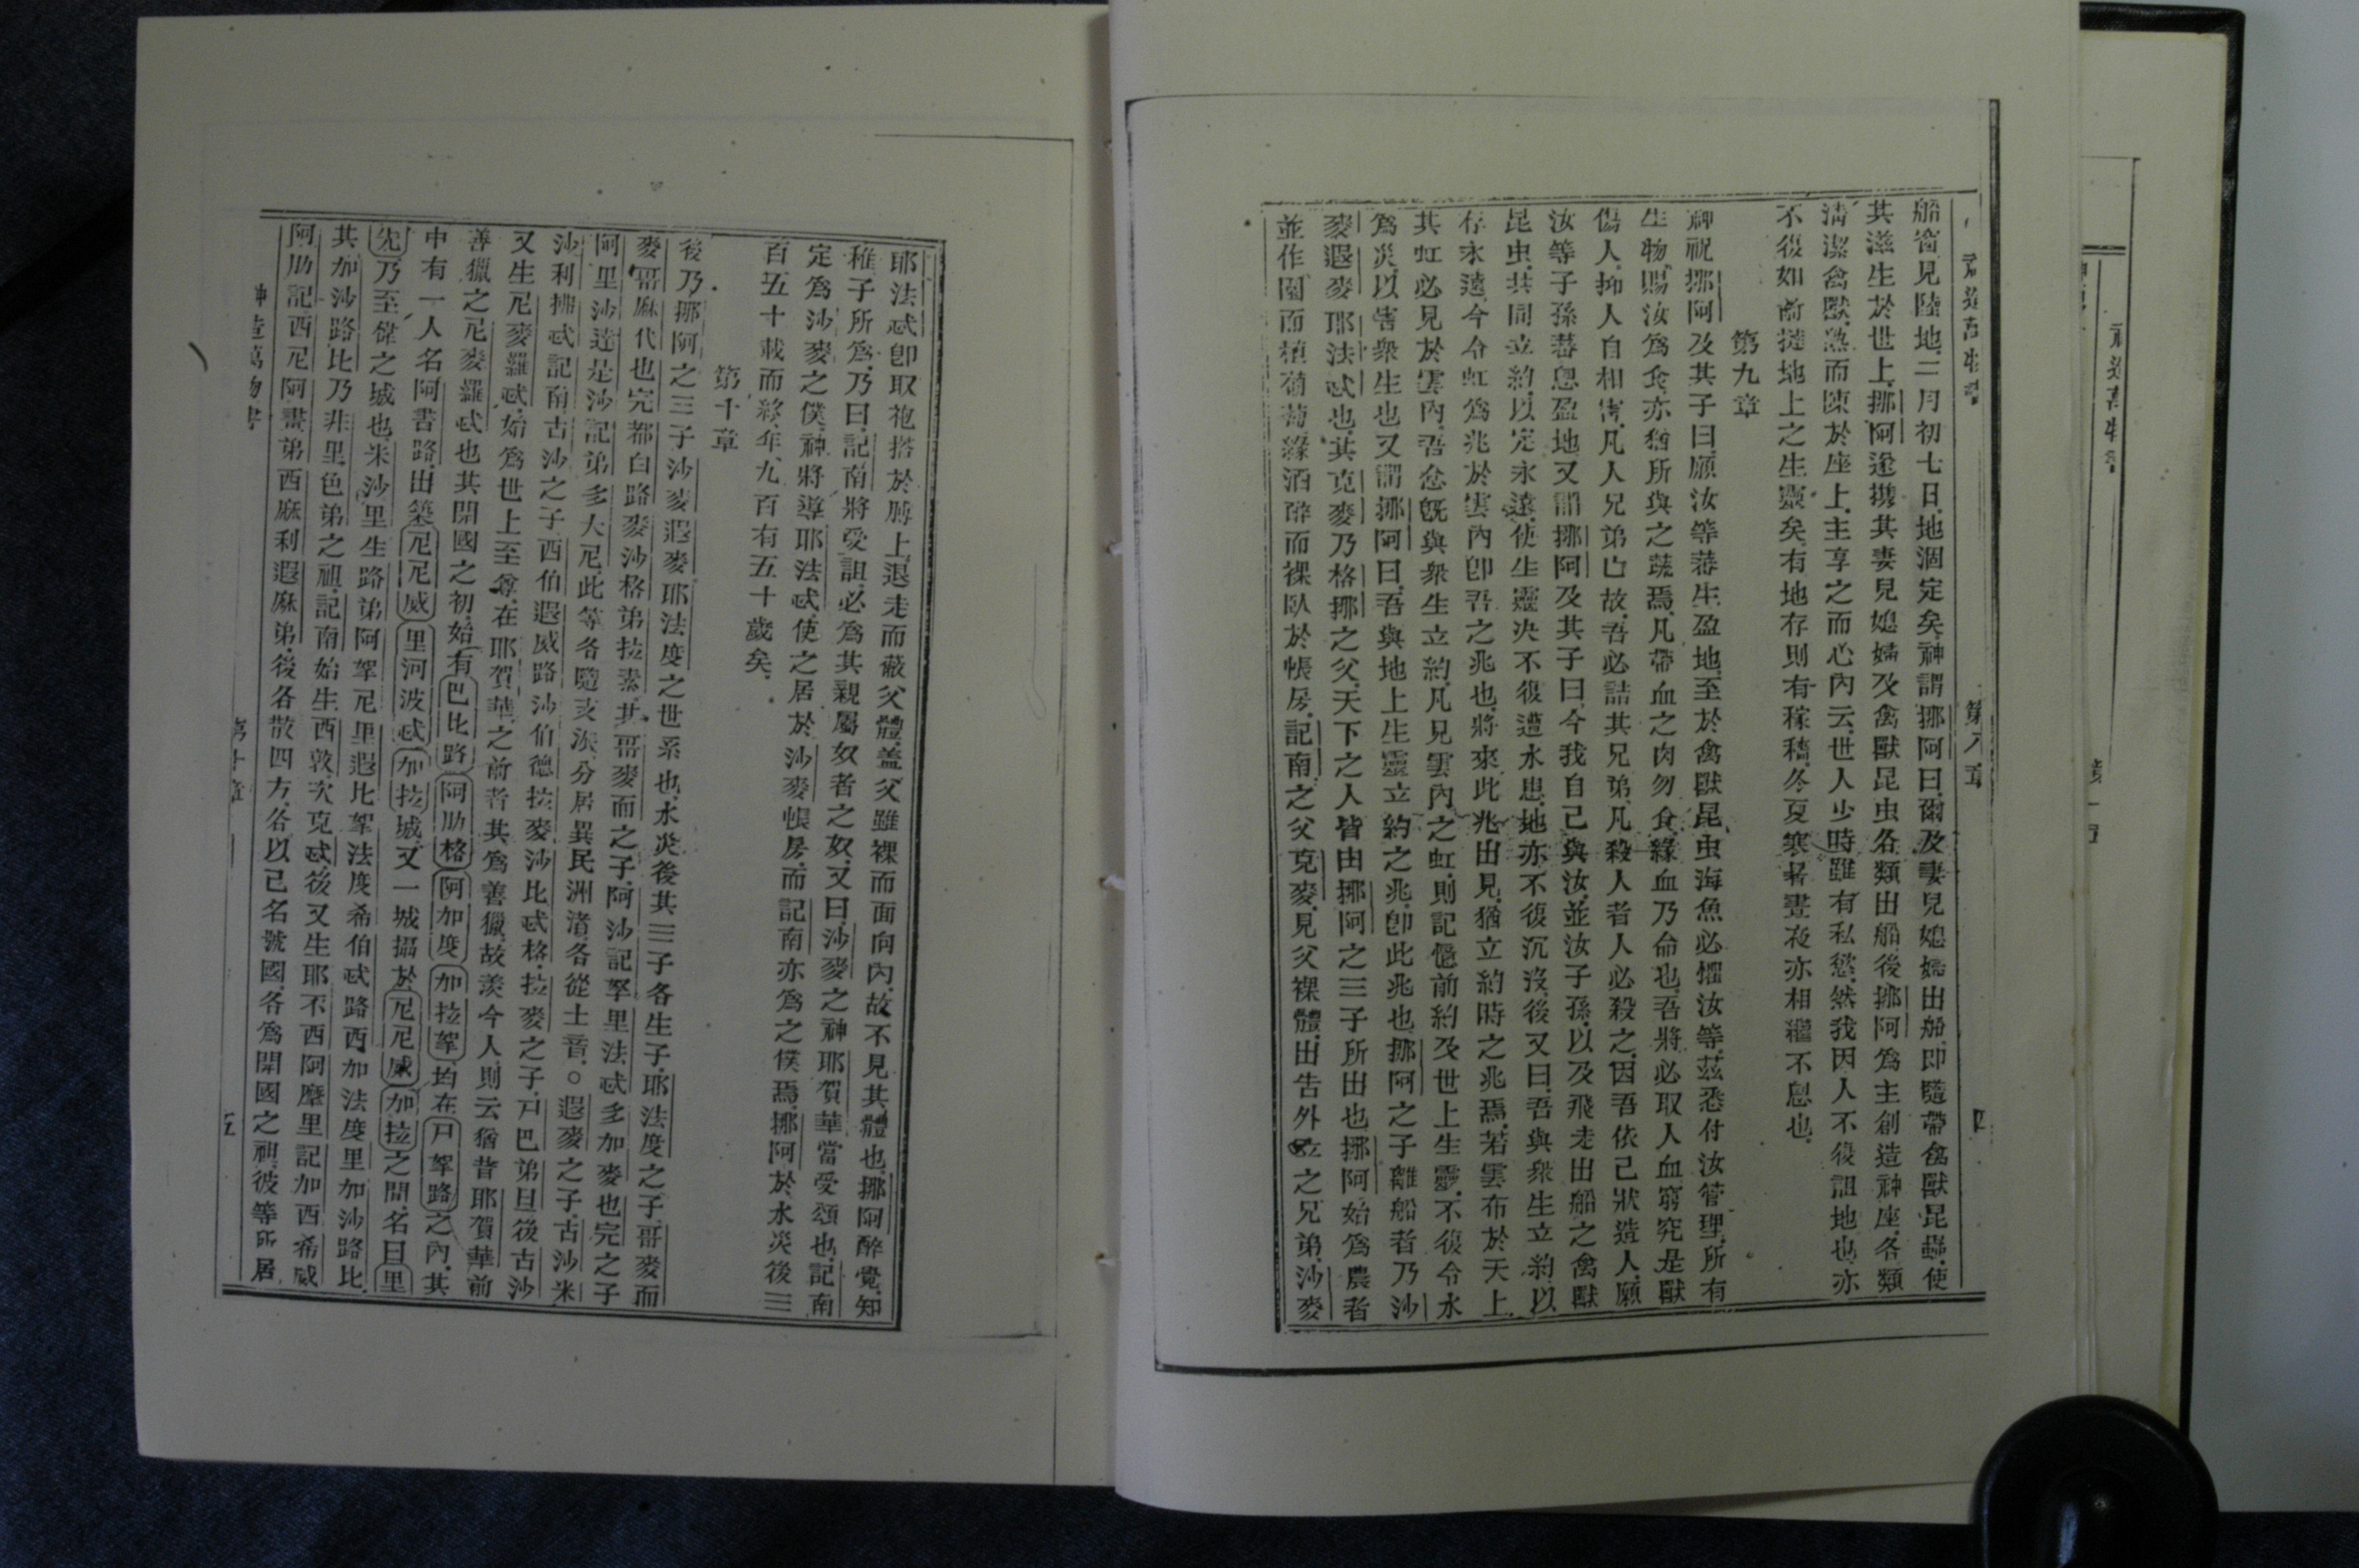 神造萬物書 第八章 四
船窗見陸地二月初七日地涸定矣神謂挪阿曰爾及妻兒媳婦出船即隨帶禽獸昆蟲使
其滋生於世上挪阿遂携其妻兒媳婦及禽獸昆虫各類出船後挪阿爲主創造神座各類
清潔禽獸熟而陳於座上主享之而心內云世人少時雖有私慾然我因人不復詛地也亦
不復如前撻地上之生靈矣有地存則有稼穡冬夏寒暑晝夜亦相繼不息也
第九章
神祝挪阿及其子曰願汝等蕃生盈地至於禽獸昆虫海魚必懼汝等茲悉付汝管理所有
生物賜汝爲食亦猶所與之蔬焉凡帶血之肉勿食緣血乃命也吾將必取人血窮究是獸
傷人抑人自相害凡人兄弟亡故吾必詰其兄弟凡殺人者人必殺之因吾依己狀造人願
汝等子孫蕃息盈地又謂挪阿及其子曰今我自己與汝並汝子孫以及飛走出船之禽獸
昆虫共同立約以定永遠使生靈决不復遭水患地亦不復沉沒後又曰吾與衆生立約以
存永遠今令虹爲兆於雲內卽吾之兆也將來此兆出見猶立約時之兆焉若雲布於天上
其虹必見於雲內吾忿旣與衆生立約凡見雲內之虹則記憶前約及世上生靈不復令水
爲災以害衆生也又謂挪阿曰吾與地上生靈立約之兆卽此兆也挪阿之子離船者乃沙
麥遐麥耶法忒也其克麥乃格挪之父天下之人皆由挪阿之三子所出也挪阿始爲農者
並作園而植葡萄緣酒醉而裸臥於帳房記南之父克麥見父裸體出告外立之兄弟沙麥
耶法忒卽取袍搭於膊上退走而蔽父體盖父雖裸而面向內故不見其體也挪阿醉覺知
稚子所爲乃曰記南將受詛必爲其親屬奴者之奴又曰沙麥之神耶賀華當受頌也記南
定爲沙麥之僕神將導耶法忒使之居於沙麥帳房而記南亦爲之僕焉挪阿於水災後三
百五十載而終年九百有五十歲矣
第十章
後乃挪阿之三子沙麥遐麥耶法度之世系也水災後其三子各生子耶法度之子哥麥而
麥哥麻代也完都白路麥沙格弟拉素其哥麥而之子阿沙記拏里法忒多加麥也完之子
阿里沙達是沙記弟多大尼此等各隨支派分居異民洲渚各從土音○遐麥之子古沙米
沙利拂忒記南古沙之子西伯遐威路沙伯德拉麥沙比忒格拉麥之子尸巴弟旦後古沙
又生尼麥羅忒始爲世上至尊在耶賀華之前者其爲善獵故羨今人則云猶昔耶賀華前
善獵之尼麥羅忒也其開國之初始有巴比路阿肋格阿加度加拉挐均在尸挐路之內其
中有一人名阿書路出築尼尼威里河波忒加拉城又一城攝於尼尼威加拉之間名曰里
先乃至偉之城也米沙里生路弟阿挐尼里遐比挐法度希伯忒路西加法度里加沙路比
其加沙路比乃非里色弟之祖記南始生西敦次克忒後又生耶不西阿麼里記加西希威
阿肋記西尼阿畫弟西麻利遐麻弟後各散四方各以己名號國各爲開國之祖彼等所居
神造萬物書 第十章 五